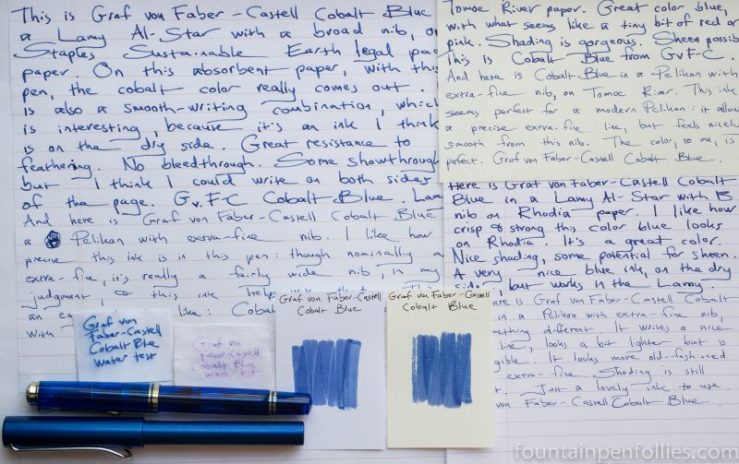 This is Graf von Faber-Castell Cobalt Blue
a Lamy Al-Star with a broad nib, on
Staples Sustainable Earth legal pad
paper. On this absorbent paper, with this
pen, the cobalt color really comes out.
is also a smooth-writing combination, which
is interesting, because it's an ink I think
is on the dry side. Great resistance to
feathering. No bleedthrough. Some showthrough
but I think I could write on both sides
of the page. GvF-C Cobalt Blue. Lam
And here is Graf von Faber-Castell Cobalt Blue
a Pelikan with extra-fine nib. I like how
precise this ink is in this pen: though nominally a
extra-fine, it's really a fairly wide nib, in my
judgment, so this ink helps
an e like: Cobal
With
Tomoe River paper. Great color blue,
with what seems like a tiny bit of red or
pink. Shading is gorgeous. Sheen possib
This is Cobalt Blue from GvF-C.
And here is Cobalt Blue in a Pelikan with
extra-fine nib, on Tomoe River. This ink
seems perfect for a modern Pelikan: it allow
a precise extra-fine line, but feels nicely
smooth from this nib. The color, to me, is
perfect. Graf von Faber-Castell Cobalt Blue.
Here is Graf von Faber-Castell Cobalt
Blue in a Lamy Al-Star with B
nib on Rhodia paper. I like how
crisp & strong this color blue looks
on Rhodia. It's a great color.
Nice shading, some potential for sheen.
A very nice blue ink, on the dry
side, but works in the Lamy.
ere is Graf von Faber-Castell Cobalt
in a Pelikan with extra-fine nib,
ething different. It writes a nice
line, looks a bit lighter but is
gible. It looks more old-fashioned
extra-fine. Shading is still
t. Just a lovely ink to use
von Faber-Castell Cobalt Blue.
Graf von
Faber-Castell
Cobalt Blue
water test
Graf von
Faber-Castell
Cobalt Blue
water test
Graf von Faber-Castell
Cobalt Blue
Graf von Faber-Castell
Cobalt Blue
fountainpenfollies.com